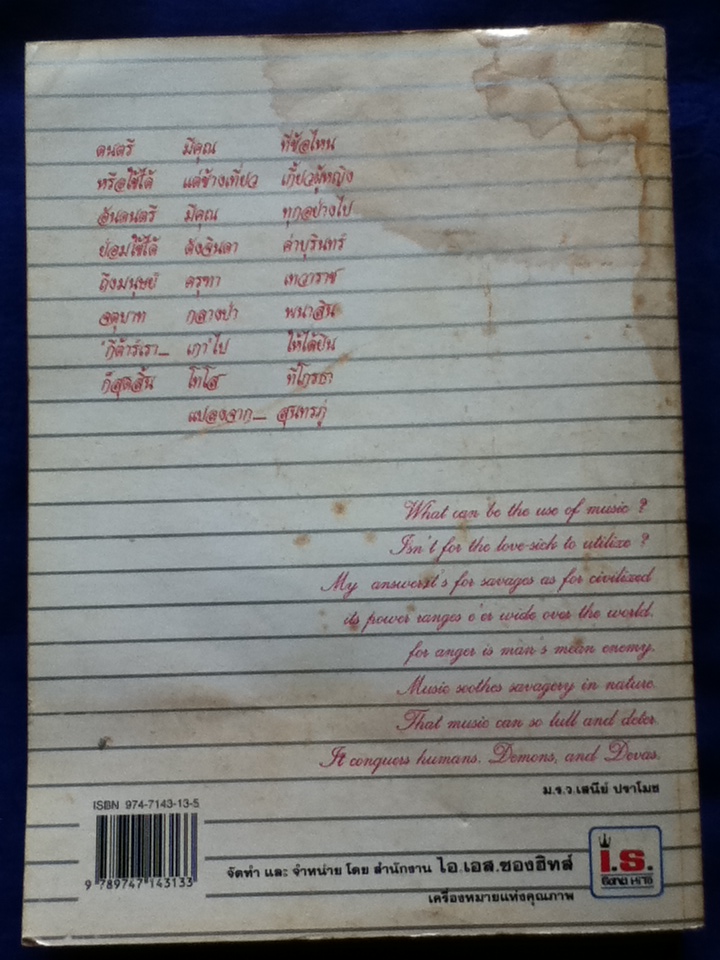 ดนตรี มีคุณ ที่ข้อไหน
หรือใช้ได้ แต่ข้างเที่ยว เกี้ยวผู้หญิง
อันดนตรี มีคุณ ทุกอย่างไป
ย่อมใช้ได้ ดังจินดา ค่าบุรินทร์
ถึงมนุษย์ ครุฑา เทวาราช
จตุบาท กลางป่า พนาสิน
'กีต้าร์เรา_ เกา'ไป ให้ได้ยิน
ก็สุดสิ้น โทโส ที่โกรธา
แปลงจาก_ สุนทรภู่
What can be the use of music ?
Isn't for the love-sick to utilize ?
My answerst's for savages as for civilized
its power ranges e'er wide over the world.
for anger is man's mean enemy.
Music soothes savagery in nature.
That music can so lull and deter.
It conquers humans. Demons, and Devas.
ม.ร.ว.เสนีย์ ปราโมช
ISBN 974-7143-13-5
9 789747 143133
จัดทำ และ จำหน่าย โดย สำนักงาน ไอ.เอส.ซองฮิทส์
เครื่องหมายแห่งคุณภาพ
I.S.
SONG HITS